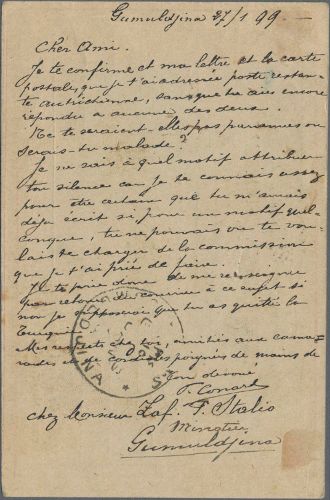 Gumuldjina 27/1 99.
Cher Ami.
Je te confirme et ma lettre et la carte
postale, que je t'ai adressée poste restan-
te autrichienne, sans que tu aies encore
répondu a aucune des deux.
Ne te seraient-elles pas parvenues ou
serais-tu malade?
Je ne sais à quel motif attribuer
ton silence car je te connais assez
pour être certain que tu m'aurais
déja écrit si, pour un motif quel-
conque, tu ne pouvais ou te vou-
lais te charger de la commission
que je t'ai prié de faire.
Je te prie donc de me renseigner
par retour du courrier à ce sujet si
non je supposerai que tu as quitté la
Turquie.
Mes respects chez toi, amitiés aux cama-
rades et de cordiales poignées de mains de
Ton dévoué
F. Conard
chez Monsieur Zaf. F. Stalio
Gumuldjina